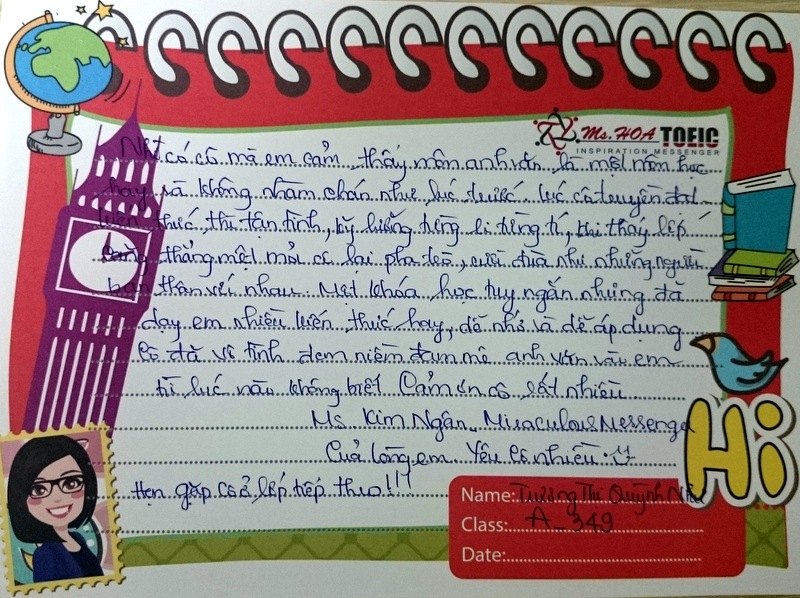 Ms.HOA TOEIC
INSPIRATION MESSENGER
Nhờ có cô mà em cảm thấy môn anh văn là một môn học
hay và không nhàm chán như lúc trước. Lúc cô truyền đạt
kiến thức, thì tận tình, kỹ lưỡng từng li từng tí, khi thấy lớp
căng thẳng mệt mỏi cô lại pha trò, cười đùa như những người
bạn thân với nhau. Một khóa học tuy ngắn nhưng đã
dạy em nhiều kiến thức hay, dễ nhớ và dễ áp dụng
Cô đã vô tình đem niềm đam mê anh văn vào em
từ lúc nào không biết Cảm ơn cô rất nhiều.
Ms. Kim Ngân - Miraculous Messenger
Của lòng em. Yêu cô nhiều
Hẹn gặp cô ở lớp tiếp theo!!!
Hi
Name: Trương Thị Quỳnh Như
Class: A-349
Date: